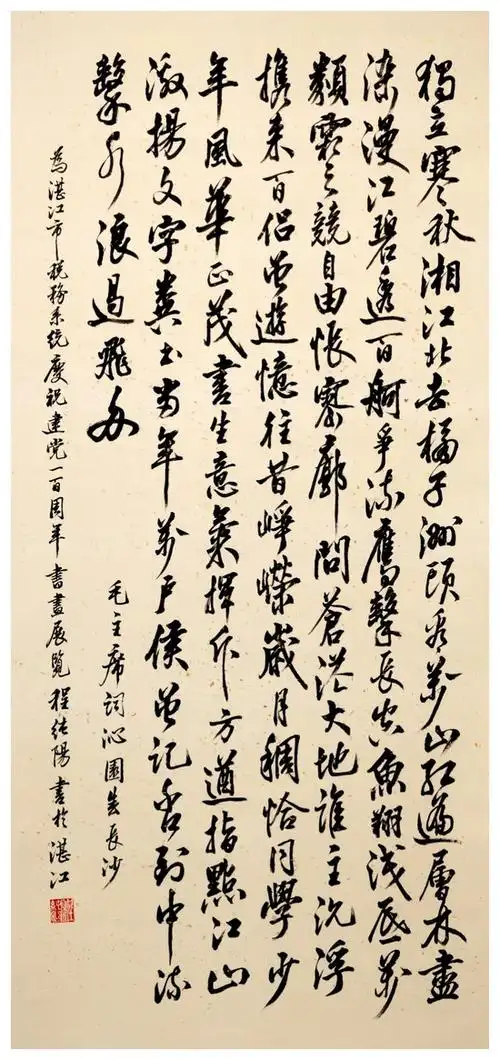 獨立寒秋湘江北去橘子洲頭看萬山紅遍層林盡
染漫江碧透百舸爭流鷹擊長空魚翔淺底萬
類霜天競自由悵寥廓問蒼茫大地誰主沉浮
携來百侣曾遊憶往昔崢嶸歲月稠恰同學少
年風華正茂書生意氣揮斥方遒指點江山
激揚文字糞土當年萬户侯曾記否到中流
擊水浪遏飛舟
毛主席詞沁園春長沙
為湛江市税務系統慶祝建党一百周年書畫展覽程陽書於湛江